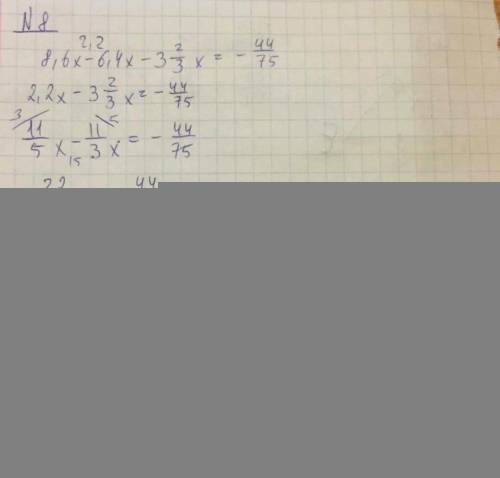 N 8
2,2
8,6x - 6,4x - 3 2/3 x = - 44/75
2,2x - 3 2/3 x = - 44/75
3 5
11/5 x - 11/3 x = - 44/75
15
22 44